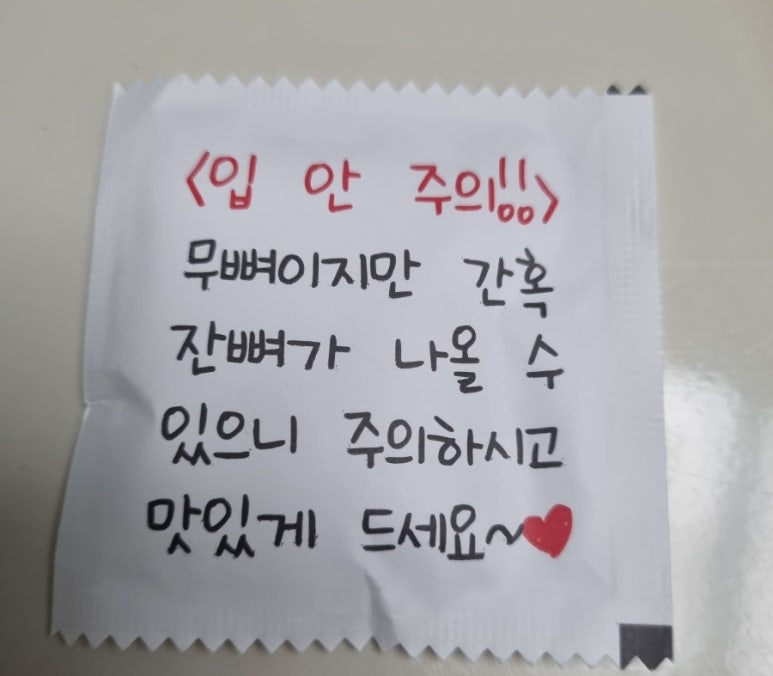 <입 안 주의!!>
무뼈이지만 간혹
잔뼈가 나올 수
있으니 주의하시고
맛있게 드세요~♥